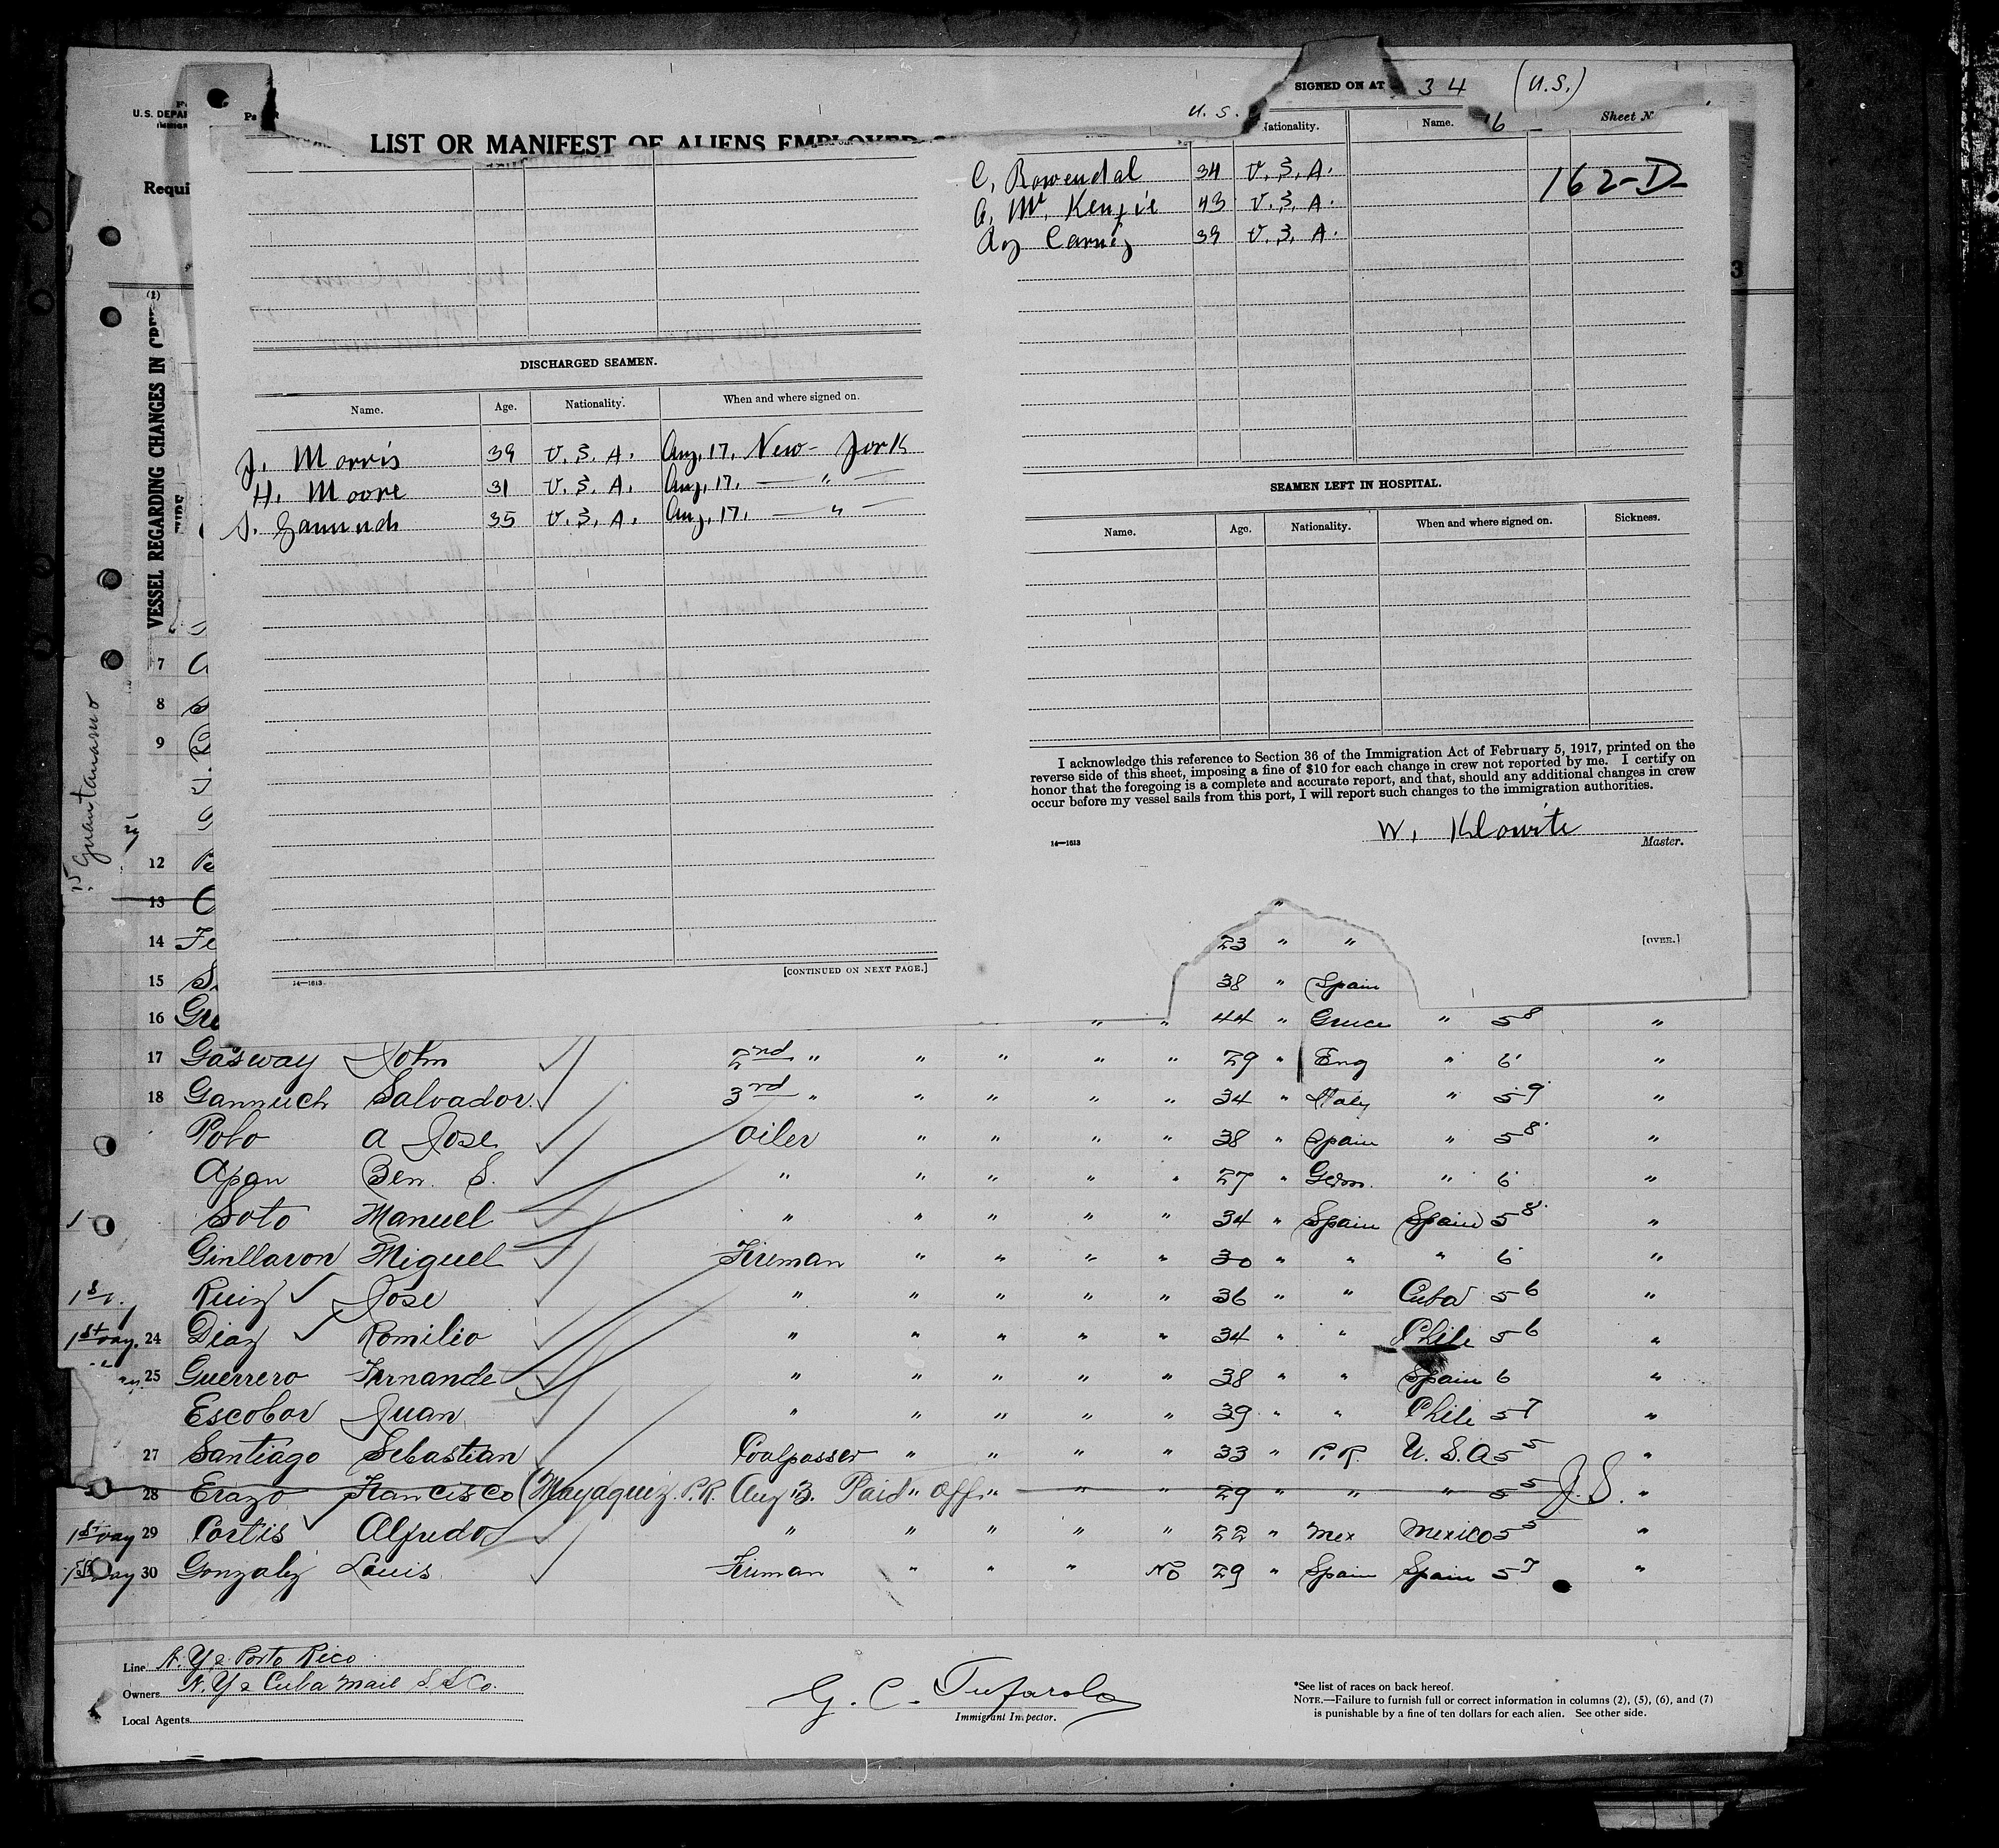 SIGNED ON AT 34 (U.S.)
U.S. DEPAR
U. S.
LIST OR MANIFEST OF ALIENS EMPLOYED
Nationality. Name. 16 Sheet N
Requi
162-D
C. Rowendal 34 U.S.A.
43 U.S.A.
39 U.S.A.
3
(1)
VESSEL REGARDING CHANGES IN CRE
DISCHARGED SEAMEN.
Name. Age. Nationality. When and where signed on.
J. Morris 39 U.S.A. Aug. 17. New-York
H. Moore 31 U.S.A. Aug. 17. — " —
35 U.S.A. Aug. 17. — " —
[CONTINUED ON NEXT PAGE.]
14—1613
SEAMEN LEFT IN HOSPITAL.
Name. Age. Nationality. When and where signed on. Sickness.
I acknowledge this reference to Section 36 of the Immigration Act of February 5, 1917, printed on the
reverse side of this sheet, imposing a fine of $10 for each change in crew not reported by me. I certify on
honor that the foregoing is a complete and accurate report, and that, should any additional changes in crew
occur before my vessel sails from this port, I will report such changes to the immigration authorities.
W. Klowite
14—1613 Master.
[OVER.]
Guantanamo
7
8
9
12
13
14 Fe 23 " "
15 S. 38 " Spain
16 Gre " " 44 " Greece " 5 8 "
17 Gasway John 2nd " " " " " 29 " Eng " 6 "
18 Gannuch Salvador 3rd " " " " " 34 " Italy " 5 9 "
Polo A Jose Oiler " " " " 38 " Spain " 5 8 "
Apan Ben. S. " " " " " 27 " Germ. " 6 "
Soto Manuel " " " " " 34 " Spain Spain 5 8 "
Ginllaron Miguel Fireman " " " " 30 " " " 6 "
Ruiz Jose " " " " " 36 " " Cuba 5 6 "
1st Day. 24 Diaz Romilio " " " " " 34 " " Chile 5 6 "
25 Guerrero Fernande " " " " " 38 " " Spain 6 "
Escobar Juan " " " " " 39 " " Chile 5 7 "
27 Santiago Sebastian Coalpasser " " " " 33 " P.R. U.S.A 5 5 "
28 Erazo Francisco (Mayaquiz. P.R. Aug 13. Paid " Off " " " 29 " " " 5 5 J.S. "
1st Day 29 Cortis Alfredo " " " " " 22 " Mex Mexico 5 5 "
1st Day 30 Gonzalez Louis Fireman " " " No 29 " Spain Spain 5 7 "
Line N.Y & Porto Rico
Owners N.Y & Cuba Mail S.S.Co.
Local Agents
G. C. Tufarolo
Immigrant Inspector.
*See list of races on back hereof.
NOTE.—Failure to furnish full or correct information in columns (2), (5), (6), and (7)
is punishable by a fine of ten dollars for each alien. See other side.